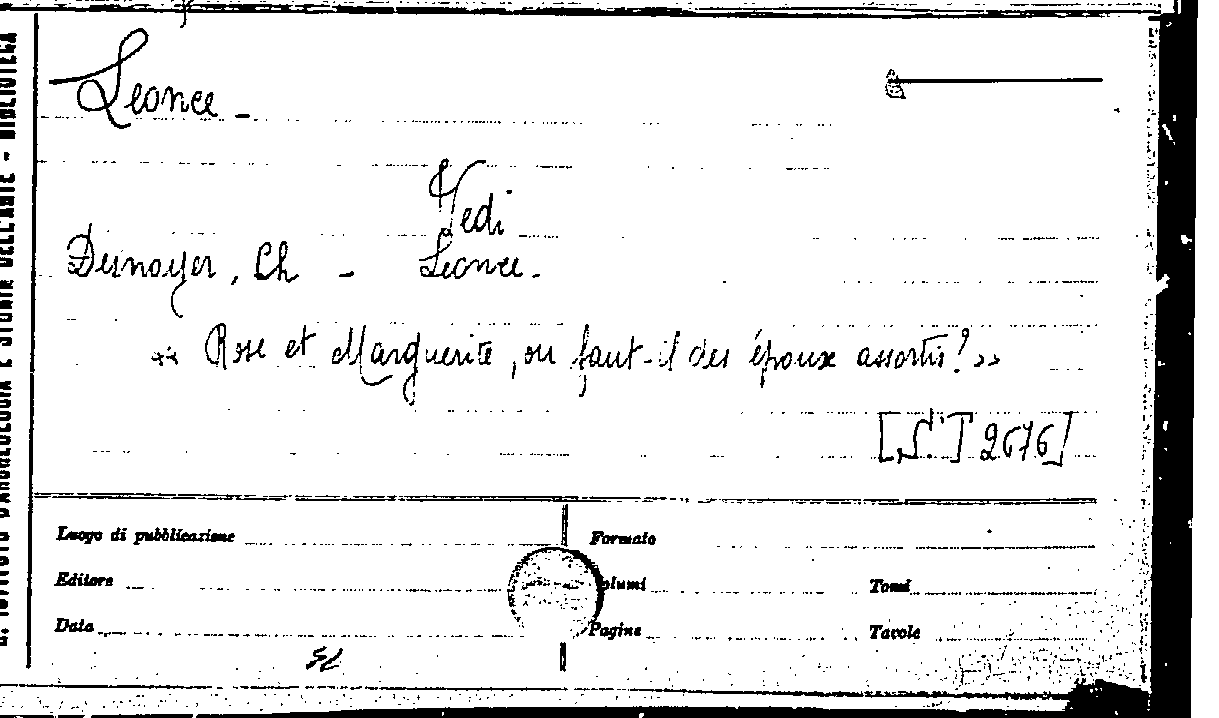 Leonce -
Vedi
Desnoyer, Ch - Leonce.
« Rose et Marguerite, ou faut-il des époux assortis? »
2676]
Luogo di pubblicazione
Formato
Editore
Volumi
Tomi
Data
Pagine
Tavole
R. ISTITUTO D'ARCHEOLOGIA E STORIA DELL'ARTE - BIBLIOTECA